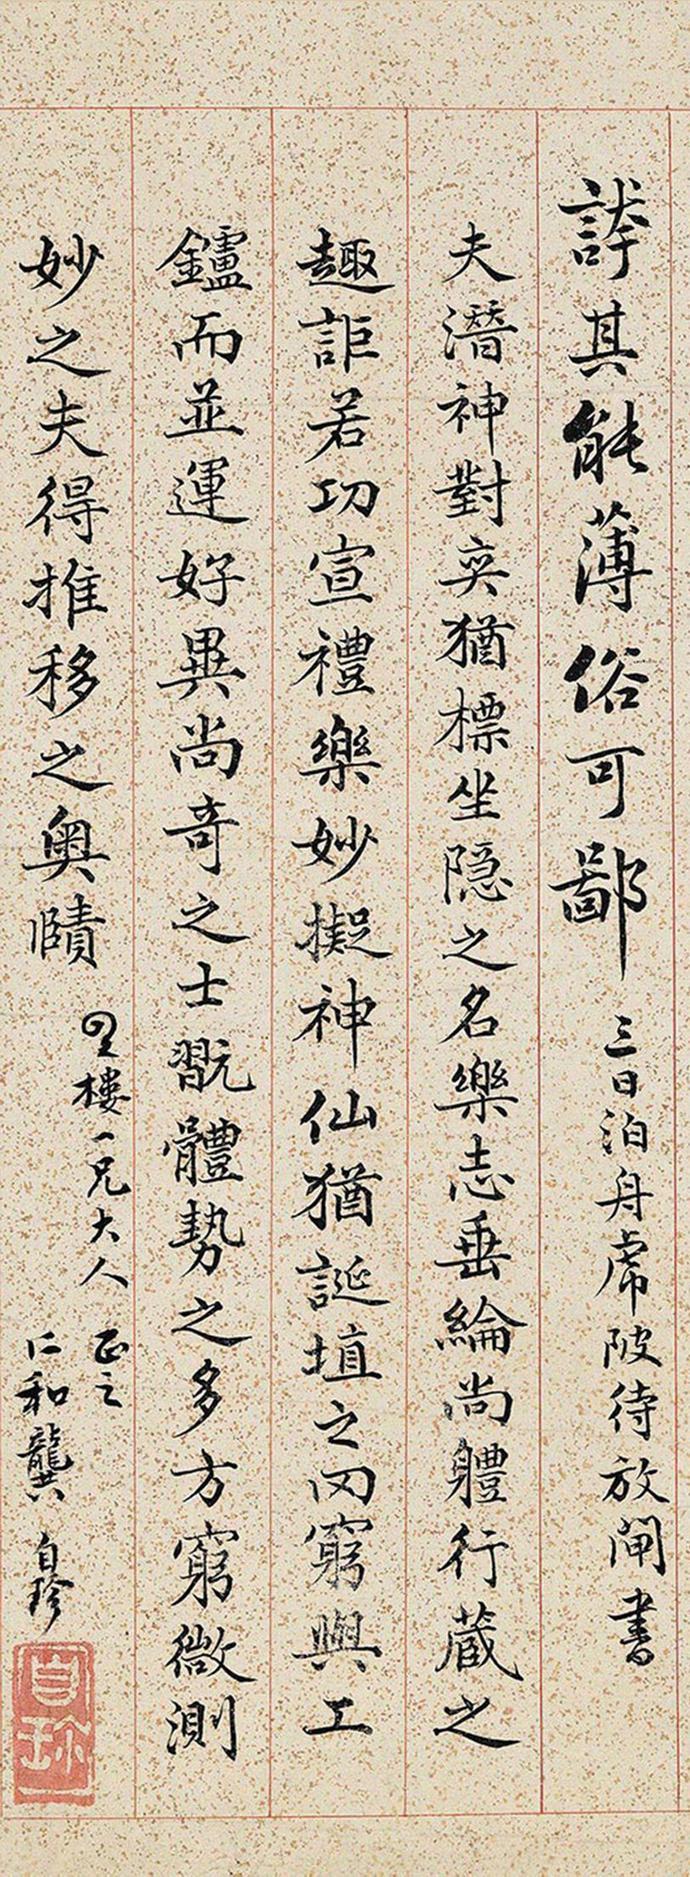 誇其能薄俗可鄙
三日泊舟虎陂待放閘書
夫潛神對奕猶標坐隐之名樂志垂綸尚軆行蔵之
趣詎若功宣禮樂妙擬神仙猶誕埴之罔窮與工
鑪而並運好異尚奇之士翫體勢之多方窮微測
妙之夫得推移之奧賾
星樓一兄大人
正之
仁和龔自珍
自珍